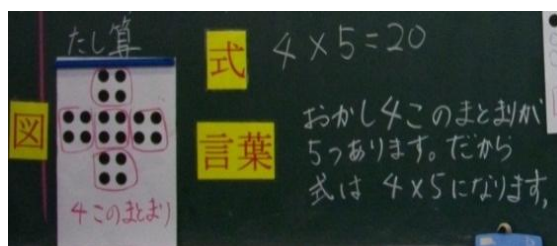 たし算
図
4このまとまり
式
4×5=20
言葉
おかし4このまとまりが
5つあります。だから
式は 4×5になります。